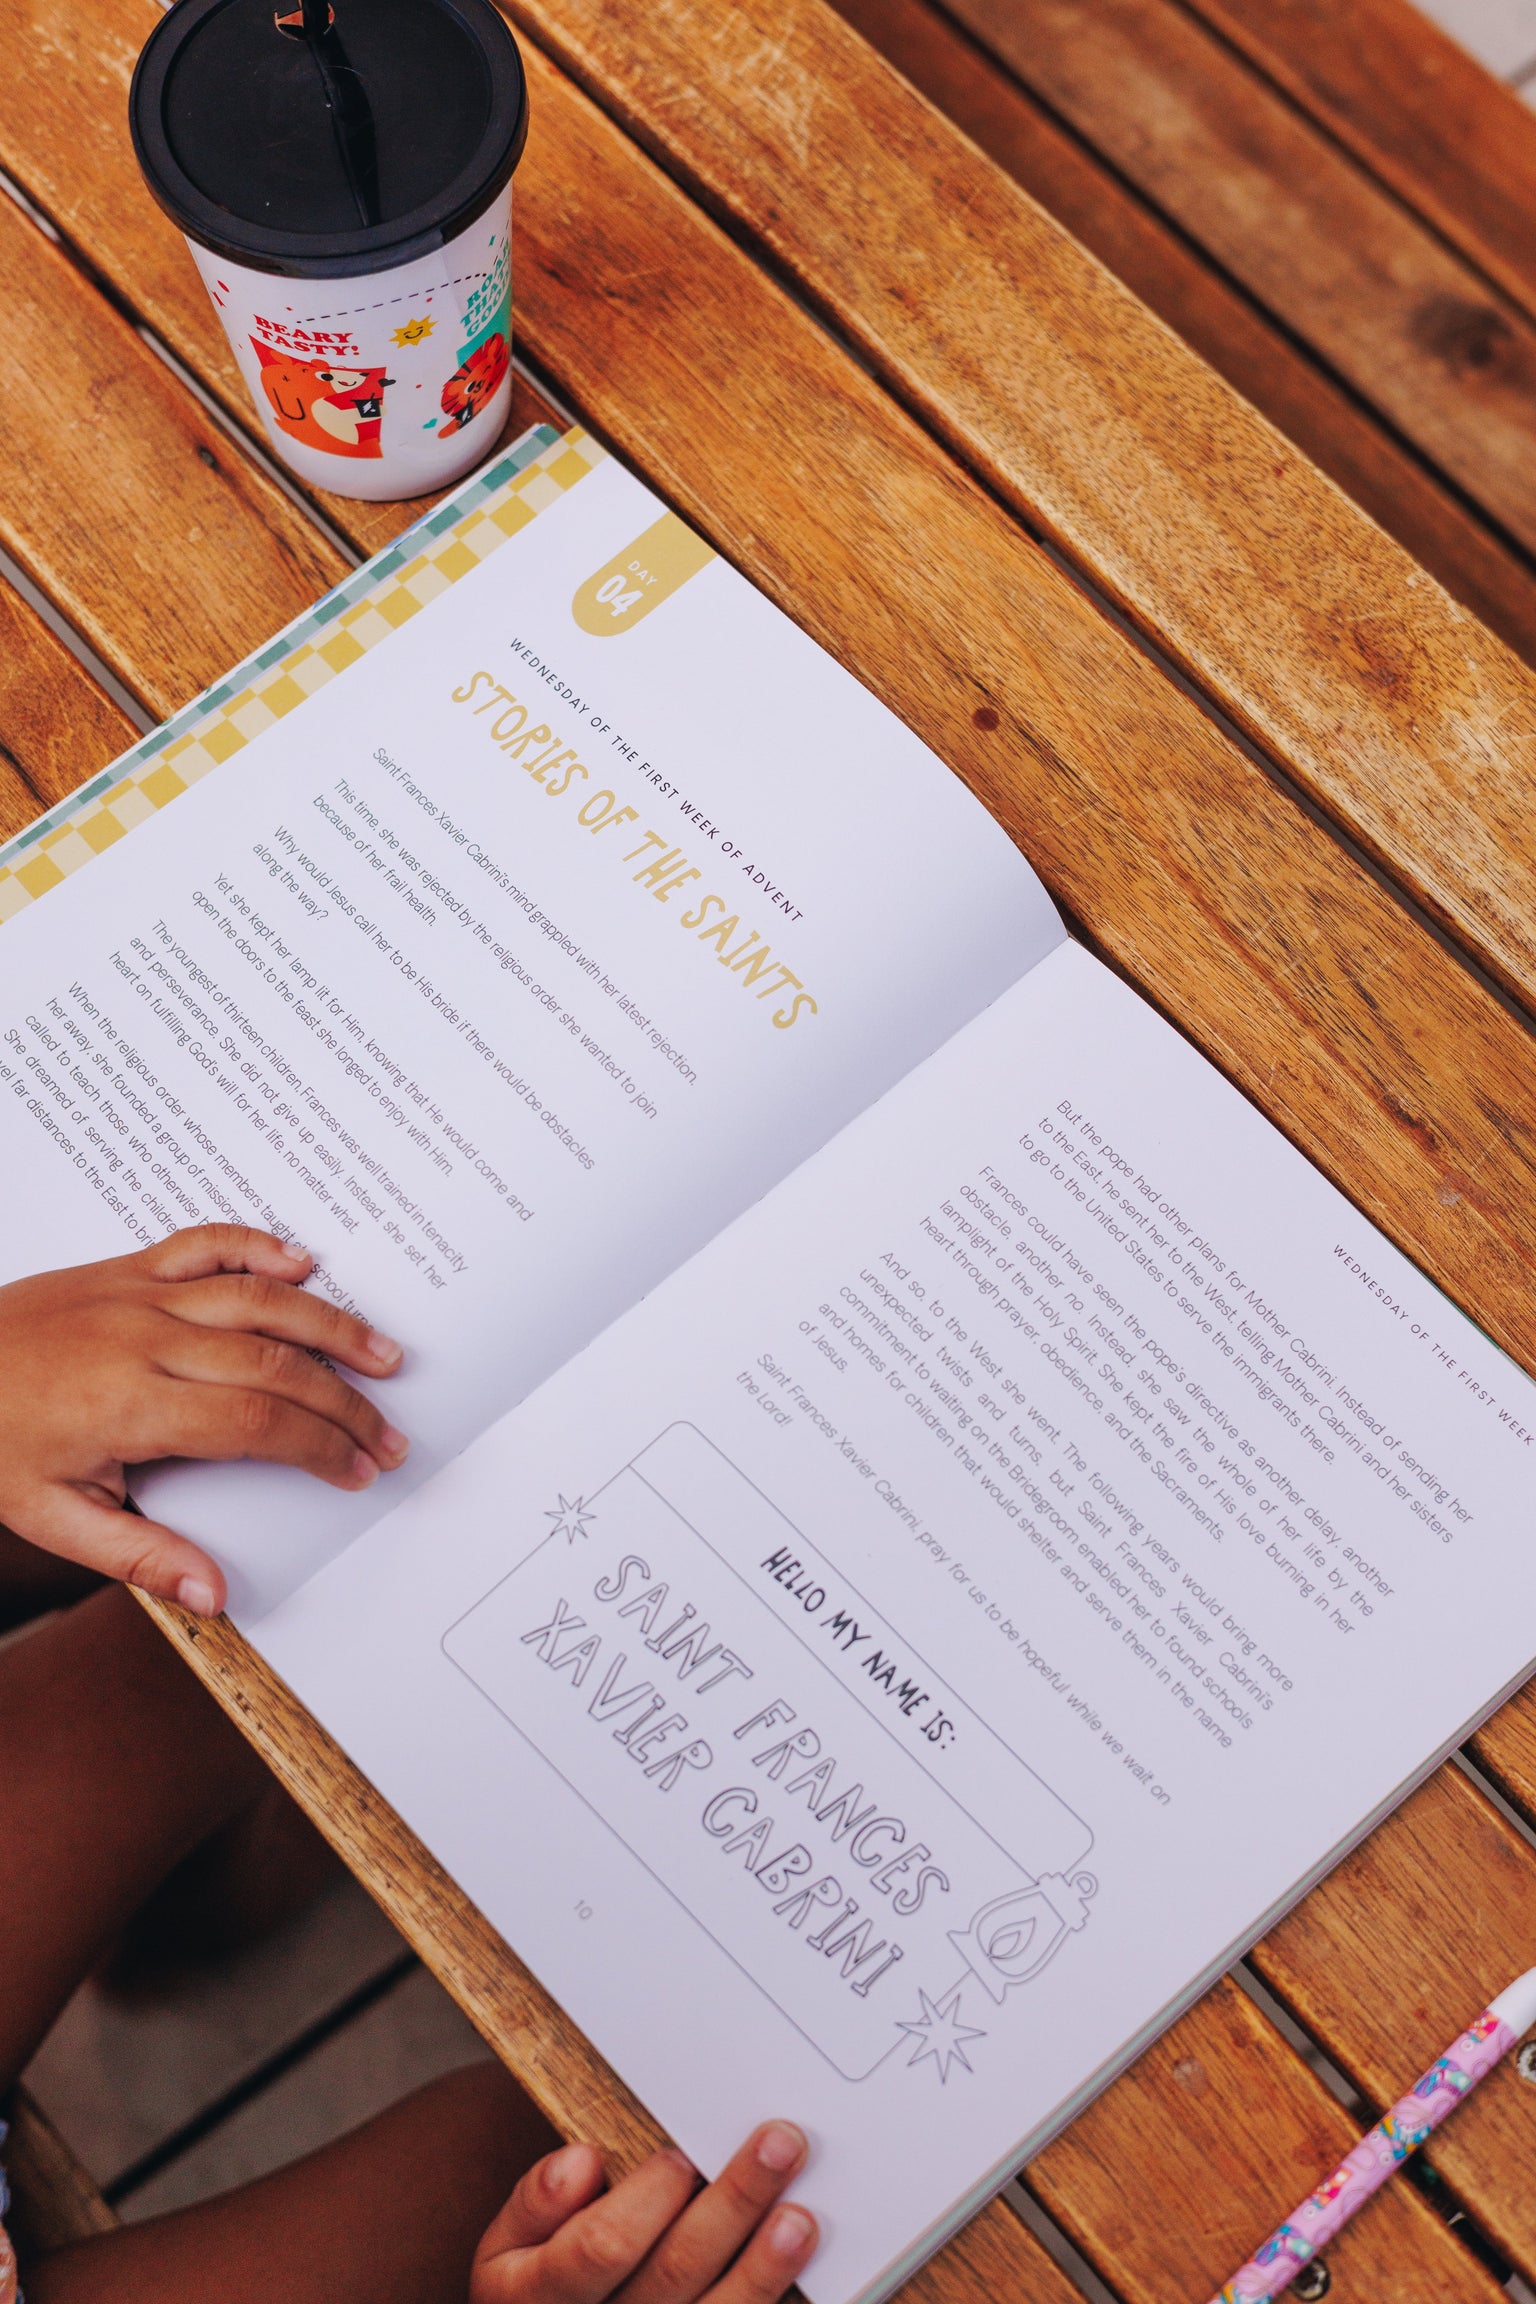 BEARY
TASTY!
I
ROAR
THAT'S
GOOD
DAY
04
WEDNESDAY OF THE FIRST WEEK OF ADVENT
STORIES OF THE SAINTS
Saint Frances Xavier Cabrini's mind grappled with her latest rejection.
This time, she was rejected by the religious order she wanted to join
because of her frail health.
Why would Jesus call her to be His bride if there would be obstacles
along the way?
Yet she kept her lamp lit for Him, knowing that He would come and
open the doors to the feast she longed to enjoy with Him.
The youngest of thirteen children, Frances was well trained in tenacity
and perseverance. She did not give up easily. Instead, she set her
heart on fulfilling God's will for her life, no matter what.
When the religious order whose members taught at school turned
her away, she founded a group of missionar
called to teach those who otherwise
She dreamed of serving the childre
vel far distances to the East to bri
WEDNESDAY OF THE FIRST WEEK
But the pope had other plans for Mother Cabrini. Instead of sending her
to the East, he sent her to the West, telling Mother Cabrini and her sisters
to go to the United States to serve the immigrants there.
Frances could have seen the pope's directive as another delay, another
obstacle, another no. Instead, she saw the whole of her life by the
lamplight of the Holy Spirit. She kept the fire of His love burning in her
heart through prayer, obedience, and the Sacraments.
And so, to the West she went. The following years would bring more
unexpected twists and turns, but Saint Frances Xavier Cabrini's
commitment to waiting on the Bridegroom enabled her to found schools
and homes for children that would shelter and serve them in the name
of Jesus.
Saint Frances Xavier Cabrini, pray for us to be hopeful while we wait on
the Lord!
HELLO MY NAME IS:
SAINT FRANCES
XAVIER CABRINI
10